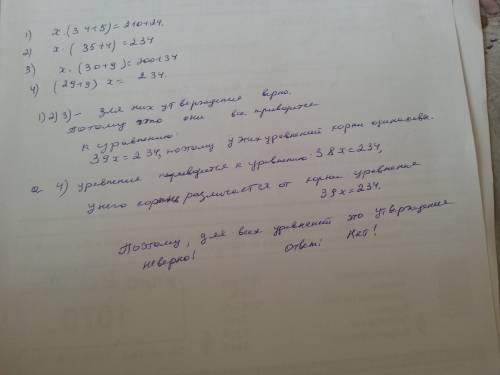 1) x·(34+5)=210+24.
2) x·(35+4)=234
3) x·(30+9)=200+34
4) (29+9)x=234.
1) 2) 3) – для них утверждение верно.
Потому что они все приводятся
к уравнению:
39x=234, поэтому у этих уравнений корни одинаковы.
а 4) уравнение приводится к уравнению: 38x=234,
у него корень различается от корней уравнения
39x=234.
Поэтому, для всех уравнений это утверждение
неверно! Ответ: Нет!
1070